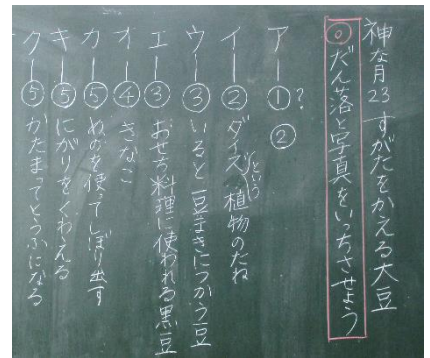 神な月23 すがたをかえる大豆
◎ だん落と写真をいっちさせよう
ア―①? ②
イ―② ダイズという植物のたね
ウ―③ いると豆まきにつかう豆
エ―③ おせち料理に使われる黒豆
オ―④ きなこ
カ―⑤ ぬのを使ってしぼり出す
キ―⑤ にがりをくわえる
ク―⑤ かたまってとうふになる